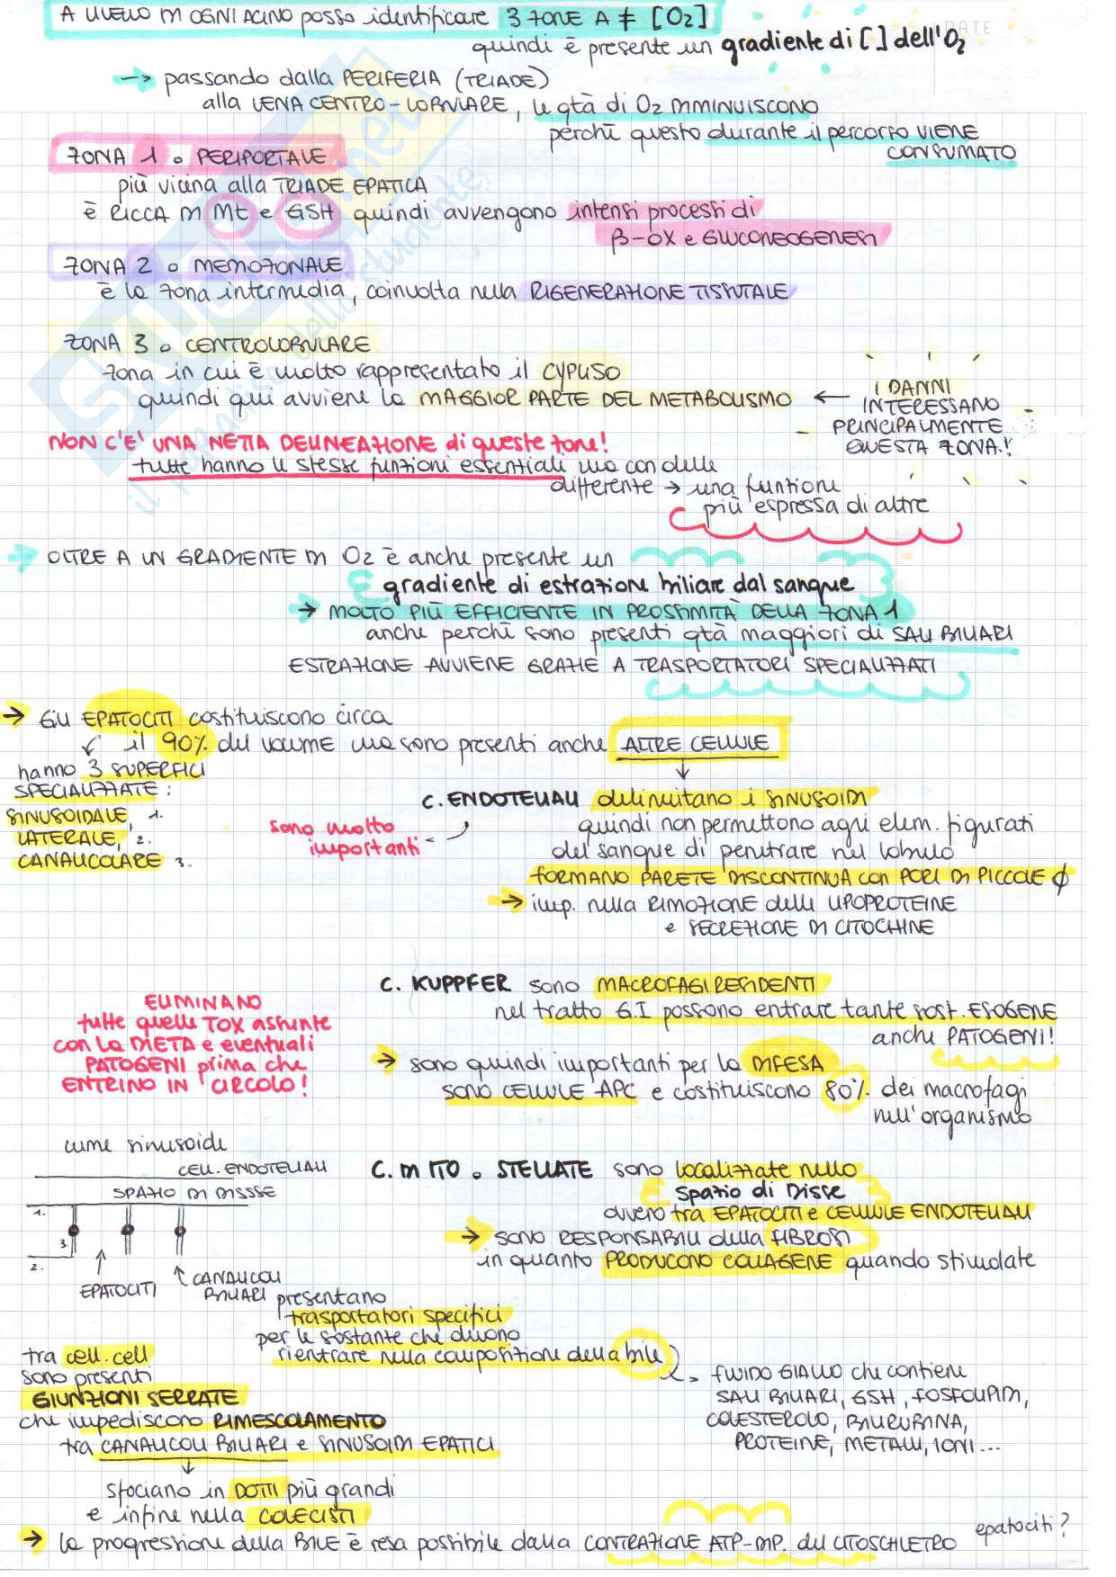 A LIVELLO DI OGNI ACINO posso identificare 3 ZONE A ≠ [O2]
quindi è presente un gradiente di [ ] dell'O2
→ passando dalla PERIFERIA (TRIADE)
alla VENA CENTRO-LOBULARE, le qtà di O2 DIMINUISCONO
perchè questo durante il percorso VIENE
CONSUMATO
ZONA 1 o PERIPORTALE
più vicina alla TRIADE EPATICA
è RICCA DI Mt e GSH quindi avvengono intensi processi di
β-OX e GLUCONEOGENESI
ZONA 2 o MEDIOZONALE
è la zona intermedia, coinvolta nella RIGENERAZIONE TISSUTALE
ZONA 3 o CENTROLOBULARE
zona in cui è molto rappresentato il CYP450
quindi qui avviene la MAGGIOR PARTE DEL METABOLISMO ←
I DANNI
INTERESSANO
PRINCIPALMENTE
QUESTA ZONA!
NON C'E' UNA NETTA DELINEAZIONE di queste zone!
tutte hanno le stesse funzioni essenziali ma con delle
differente → una funzione
più espressa di altre
→ OLTRE A UN GRADIENTE DI O2 è anche presente un
gradiente di estrazione biliare dal sangue
→ MOLTO PIÙ EFFICIENTE IN PROSSIMITÀ DELLA ZONA 1
anche perchè sono presenti qtà maggiori di SALI BILIARI
ESTRAZIONE AVVIENE GRAZIE A TRASPORTATORI SPECIALIZZATI
→ Gli EPATOCITI costituiscono circa
il 90% del volume ma sono presenti anche ALTRE CELLULE
hanno 3 SUPERFICI
SPECIALIZZATE :
SINUSOIDALE, 1.
LATERALE, 2.
CANALICOLARE 3.
C. ENDOTELIALI delimitano i SINUSOIDI
sono molto
importanti
quindi non permettono agli elem. figurati
del sangue di penetrare nel lobulo
FORMANO PARETE DISCONTINUA con PORI DI PICCOLE ϕ
→ imp. nella RIMOZIONE delle LIPOPROTEINE
e SECREZIONE DI CITOCHINE
C. KUPPFER sono MACROFAGI RESIDENTI
nel tratto G.I possono entrare tante sost. ESOGENE
anche PATOGENI!
ELIMINANO
tutte quelle TOX assunte
con la DIETA e eventuali
PATOGENI prima che
ENTRINO IN CIRCOLO!
→ sono quindi importanti per la DIFESA
SONO CELLULE APC e costituiscono 80% dei macrofagi
nell'organismo
lume sinusoide
CELL. ENDOTELIALI
SPAZIO DI DISSSE
1.
3.
2.
EPATOCITI
CANALICOLI
BILIARI presentano
trasportatori specifici
per le sostanze che devono
rientrare nella composizione della bile
C. DI ITO o STELLATE sono localizzate nello
Spazio di Disse
ovvero tra EPATOCITI e CELLULE ENDOTELIALI
→ sono RESPONSABILI della FIBROSI
in quanto PRODUCONO COLLAGENE quando stimolate
→ FLUIDO GIALLO che contiene
SALI BILIARI, GSH, FOSFOLIPIDI,
COLESTEROLO, BILIRUBINA,
PROTEINE, METALLI, IONI...
tra cell. cell
sono presenti
GIUNZIONI SERRATE
che impediscono RIMESCOLAMENTO
tra CANALICOLI BILIARI e SINUSOIDI EPATICI
sfociano in DOTTI più grandi
e infine nella COLECISTI
→ la progressione della BILE è resa possibile dalla CONTRAZIONE ATP-DIP. del CITOSCHELETRO epatociti?